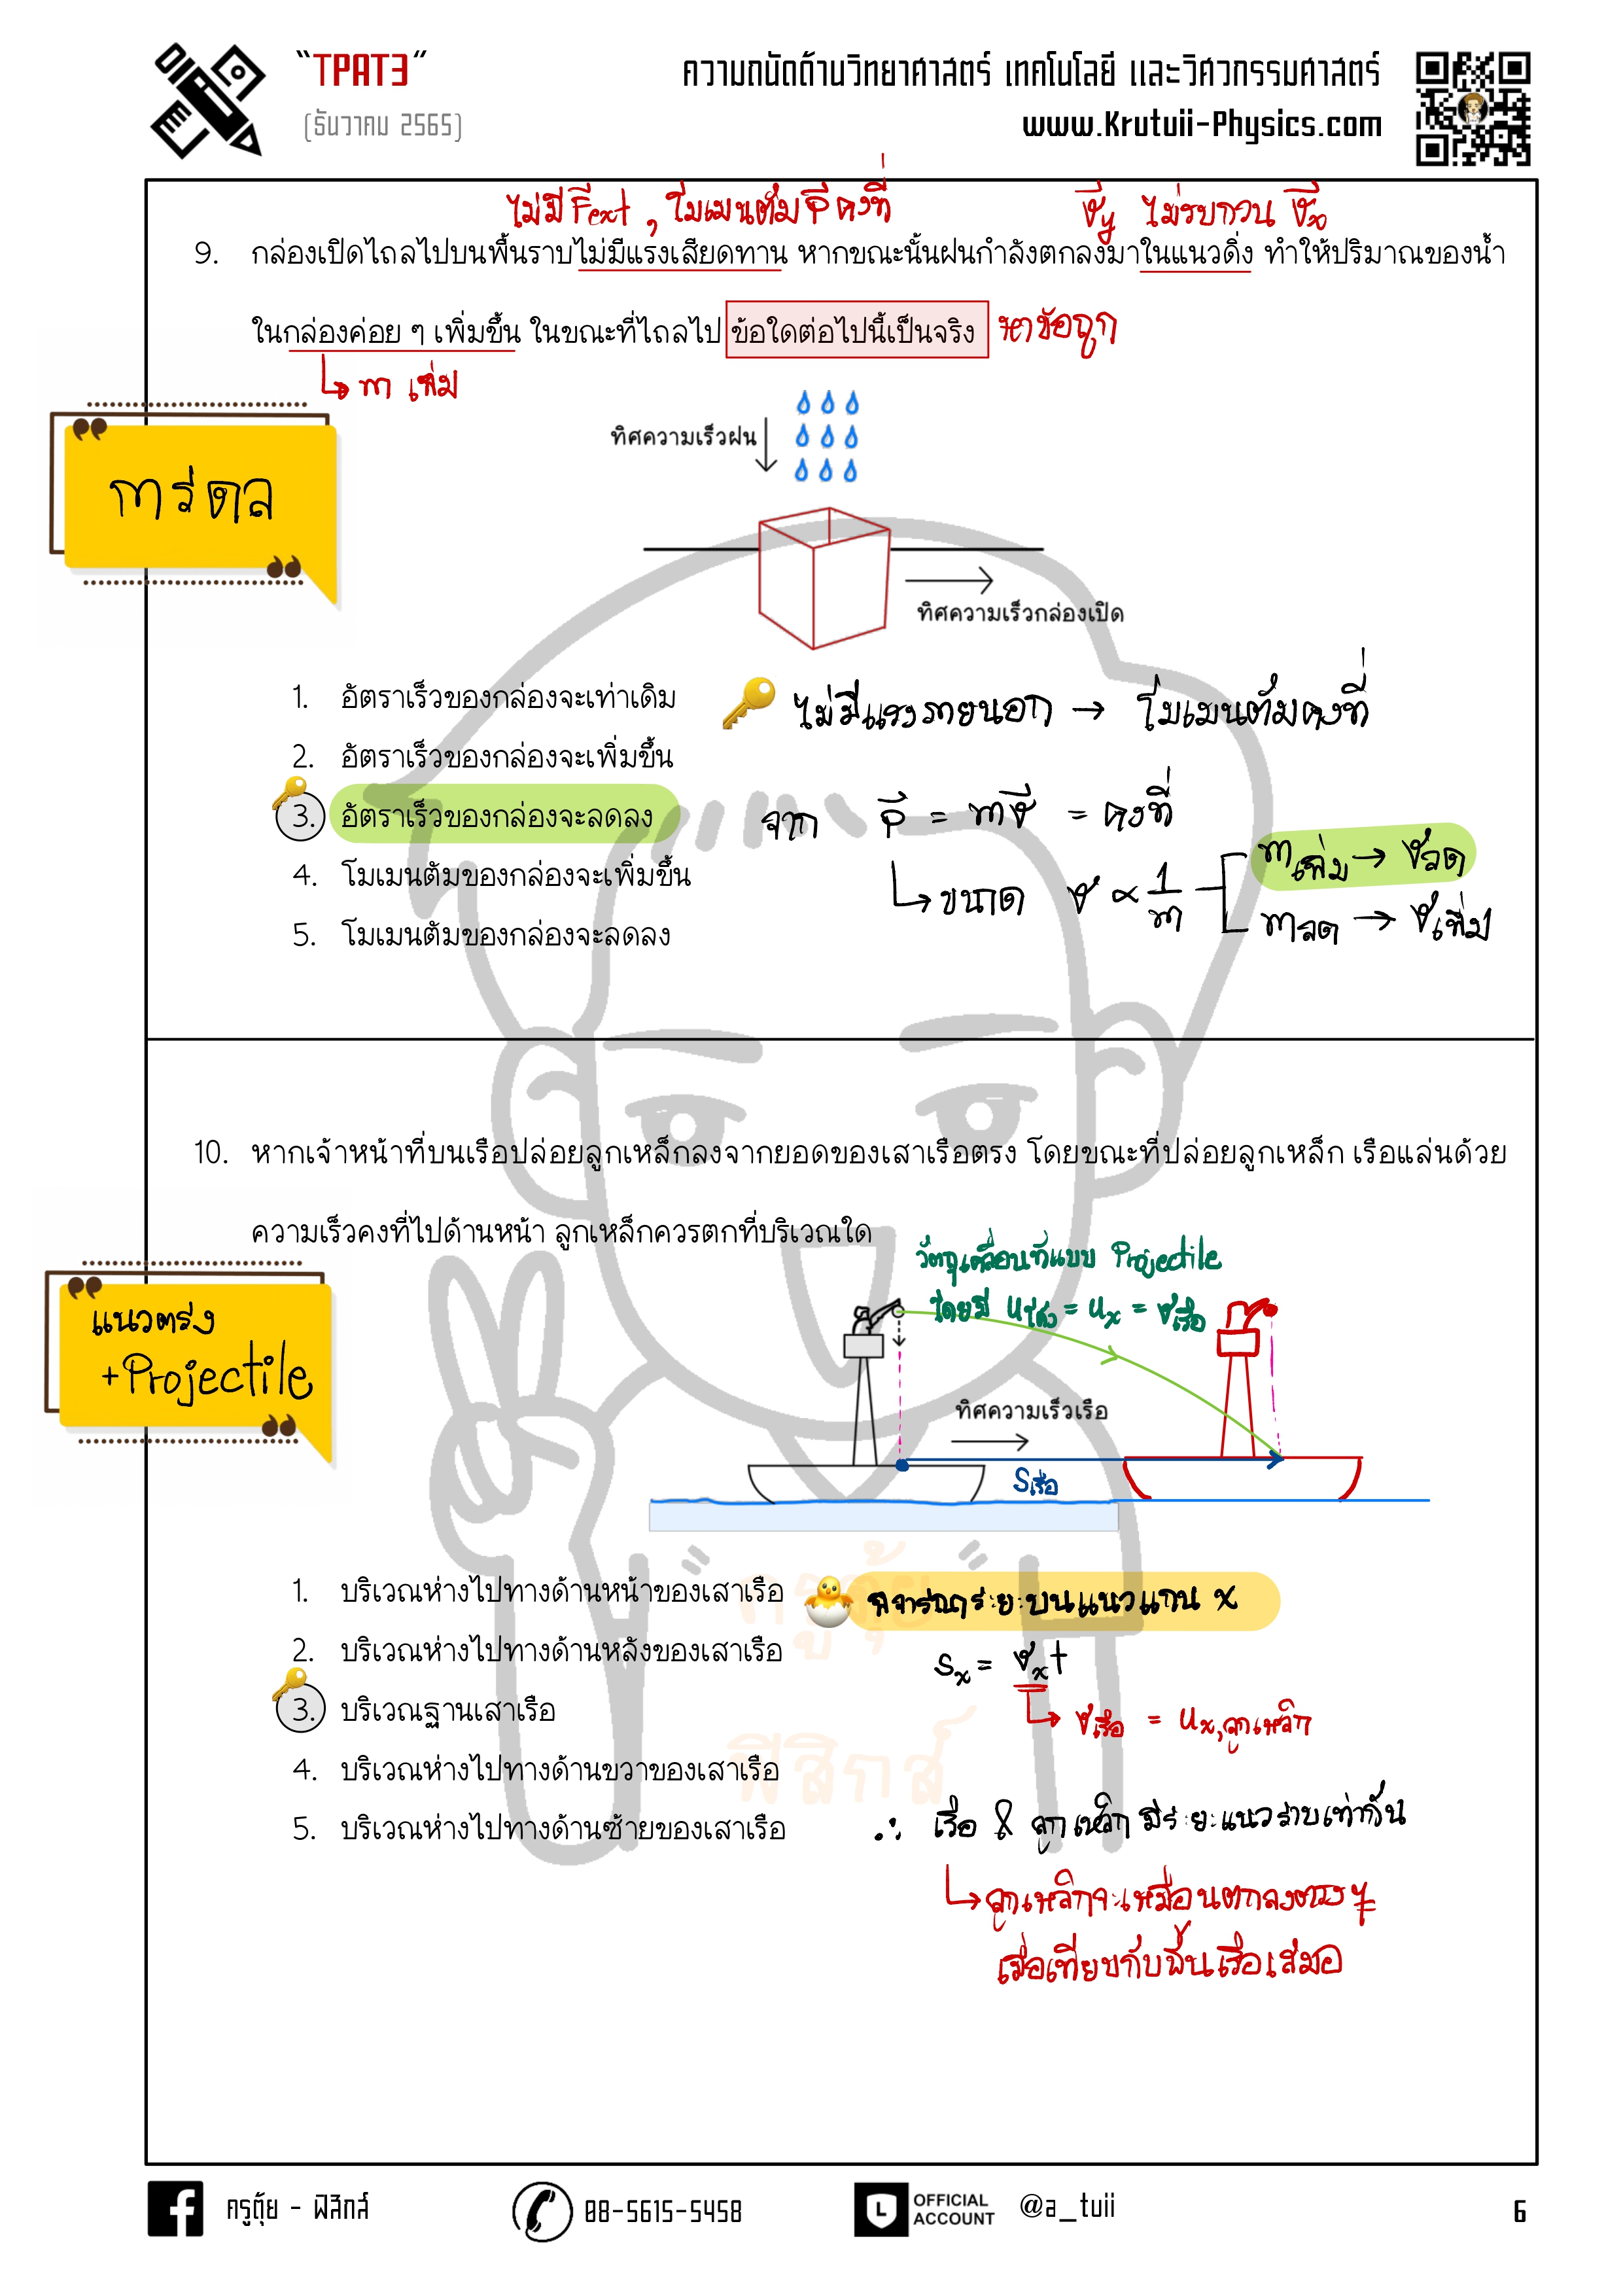 “TPAT3”
(ธันวาคม 2565)
ความถนัดด้านวิทยาศาสตร์ เทคโนโลยี และวิศวกรรมศาสตร์
www.Krutuii-Physics.com
ไม่มี Fext , โมเมนตัม P คงที่
vy ไม่รบกวน vx
9. กล่องเปิดไถลไปบนพื้นราบไม่มีแรงเสียดทาน หากขณะนั้นฝนกำลังตกลงมาในแนวดิ่ง ทำให้ปริมาณของน้ำ
ในกล่องค่อย ๆ เพิ่มขึ้น ในขณะที่ไถลไป ข้อใดต่อไปนี้เป็นจริง หาข้อถูก
m เพิ่ม
การดล
ทิศความเร็วฝน
ทิศความเร็วกล่องเปิด
1. อัตราเร็วของกล่องจะเท่าเดิม
2. อัตราเร็วของกล่องจะเพิ่มขึ้น
3. อัตราเร็วของกล่องจะลดลง
4. โมเมนตัมของกล่องจะเพิ่มขึ้น
5. โมเมนตัมของกล่องจะลดลง
ไม่มีแรงภายนอก → โมเมนตัมคงที่
จาก P = mv = คงที่
ขนาด v ∝ 1/m
m เพิ่ม → v ลด
m ลด → v เพิ่ม
10. หากเจ้าหน้าที่บนเรือปล่อยลูกเหล็กลงจากยอดของเสาเรือตรง โดยขณะที่ปล่อยลูกเหล็ก เรือแล่นด้วย
ความเร็วคงที่ไปด้านหน้า ลูกเหล็กควรตกที่บริเวณใด
แนวตรง
+Projectile
วัตถุเคลื่อนที่แบบ Projectile
โดยมี = ux = vเรือ
ทิศความเร็วเรือ
Sเรือ
1. บริเวณห่างไปทางด้านหน้าของเสาเรือ
2. บริเวณห่างไปทางด้านหลังของเสาเรือ
3. บริเวณฐานเสาเรือ
4. บริเวณห่างไปทางด้านขวาของเสาเรือ
5. บริเวณห่างไปทางด้านซ้ายของเสาเรือ
พิจารณาระยะบนแนวแกน x
Sx = vxt
vเรือ = ux,ลูกเหล็ก
∴ เรือ & ลูกเหล็ก มีระยะแนวราบเท่ากัน
ลูกเหล็กจะเหมือนตกลงตรงๆ
เมื่อเทียบกับพื้นเรือเสมอ
ครูตุ้ย
ฟิสิกส์
ครูตุ้ย - ฟิสิกส์
08-5615-5458
L
OFFICIAL
ACCOUNT
@a_tuii
6